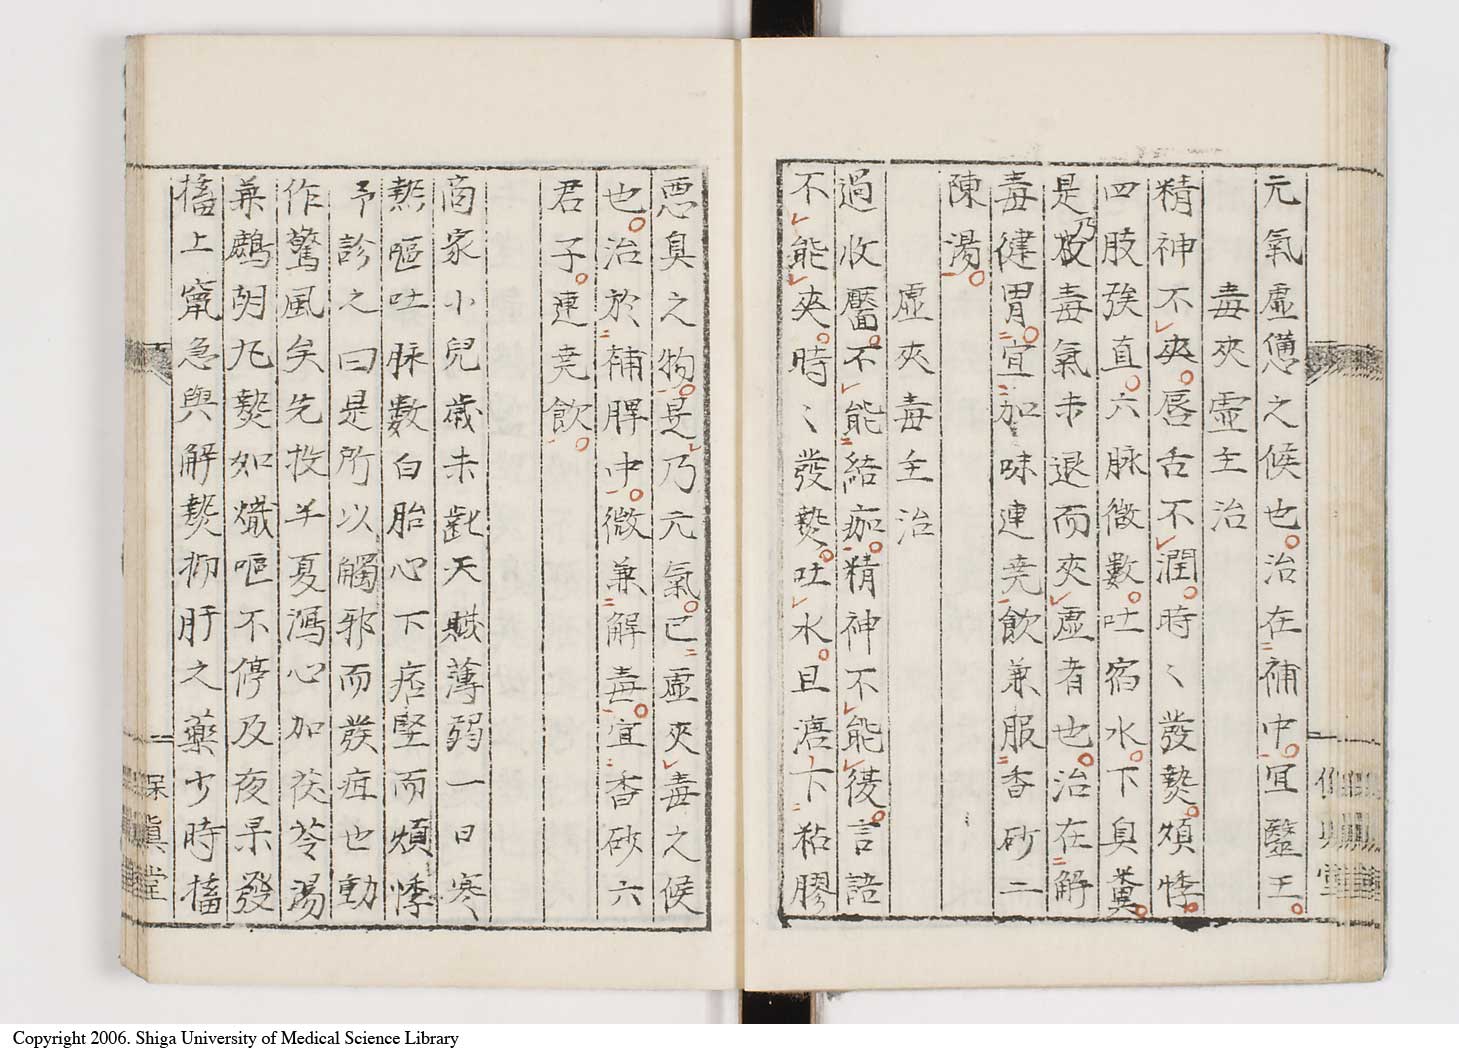 元氣虛憊之候也治在補中宜毉王
毒夾虛主治
精神不爽唇舌不潤時〻發熱煩悸
四肢強直六脉微數吐宿水下臭糞
是乃毒氣未退而夾虛者也治在解
毒健胃宜加味連堯飲兼服香砂二
陳湯
虛夾毒主治
過收靨不能結痂精神不能復言語
不能爽時〻發熱吐水且溏下粘膠
惡臭之物是乃元氣已虛夾毒之候
也治於補脾中微兼解毒宜香砂六
君子連堯飲
商家小兒歲未齔天賎薄弱一日寒
熱嘔吐脉數白胎心下痞堅而煩悸
予診之曰是所以觸邪而發症也動
作驚風矣先投半夏瀉心加茯苓湯
兼鷓胡丸熱如熾嘔不停及夜果發
搐上竄急與解熱抑肝之藥少時搐
保眞堂
Copyright 2006. Shiga University of Medical Science Library